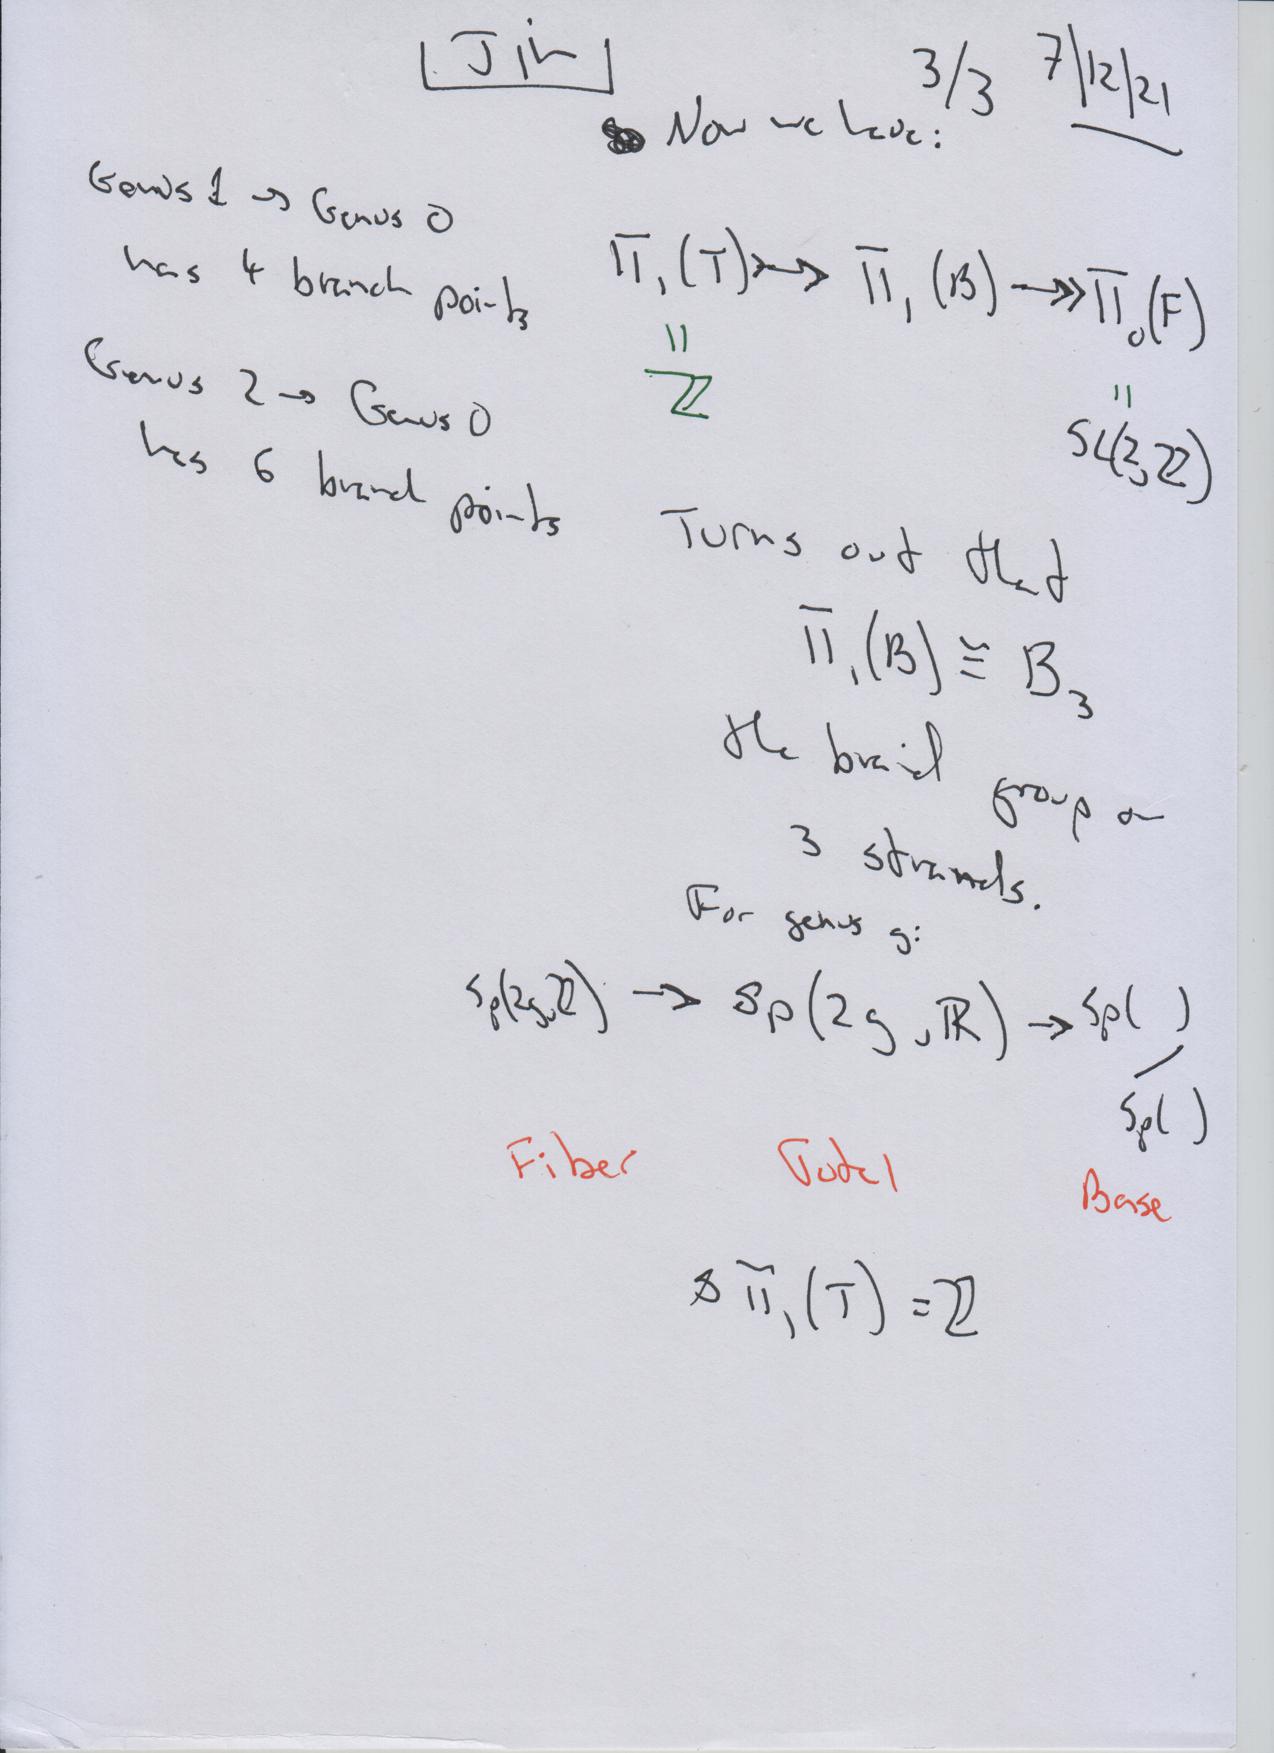 Jim
3/3 7/12/21
Now we have:
Genus 1 → Genus 0
has 4 branch points
Genus 2 → Genus 0
has 6 branch points
π₁(T) ↣ π₁(B) ↠ π₀(F)
=
ℤ
=
SL(2,ℤ)
Turns out that
π₁(B) ≅ B₃
the braid group on
3 strands.
For genus g:
Sp(2g,ℤ) → Sp(2g,ℝ) → Sp( )
/
Sp( )
Fiber Total Base
π₁(T) = ℤ